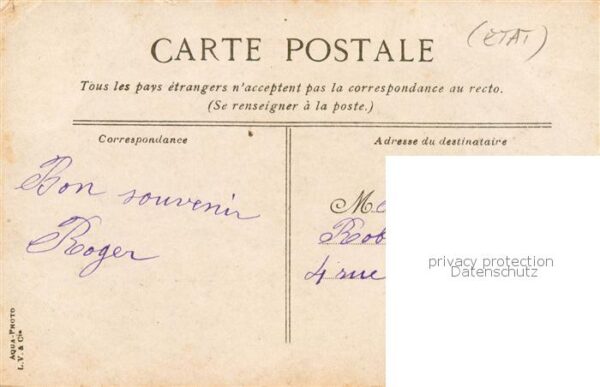 (ETAT)
CARTE POSTALE
Tous les pays étrangers n'acceptent pas la correspondance au recto.
(Se renseigner à la poste.)
Correspondance
Bon souvenir
Roger
Adresse du destinataire
4 rue
privacy protection
Datenschutz
AQUA-PHOTO
L.V. & Cie